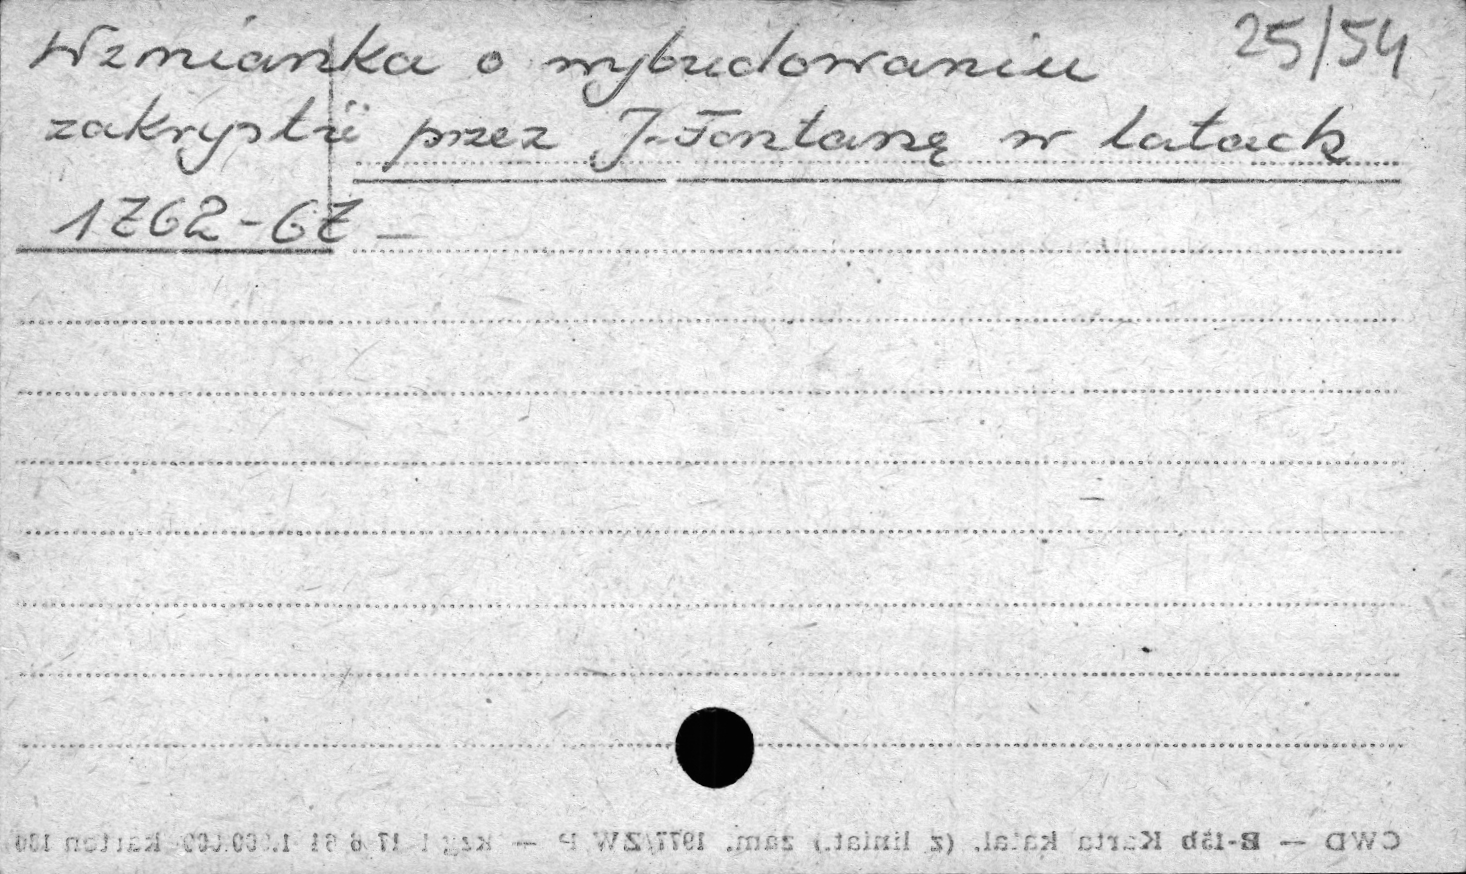 25/54
Wzmianka o wybudowaniu
zakrystii przez J. Fontanę w latach
1762-67 –
CWD — E-15b Karta katal. (z liniat.) zam. 1977/ZW P — kzg 1 17 6 81 1.000.000 karton